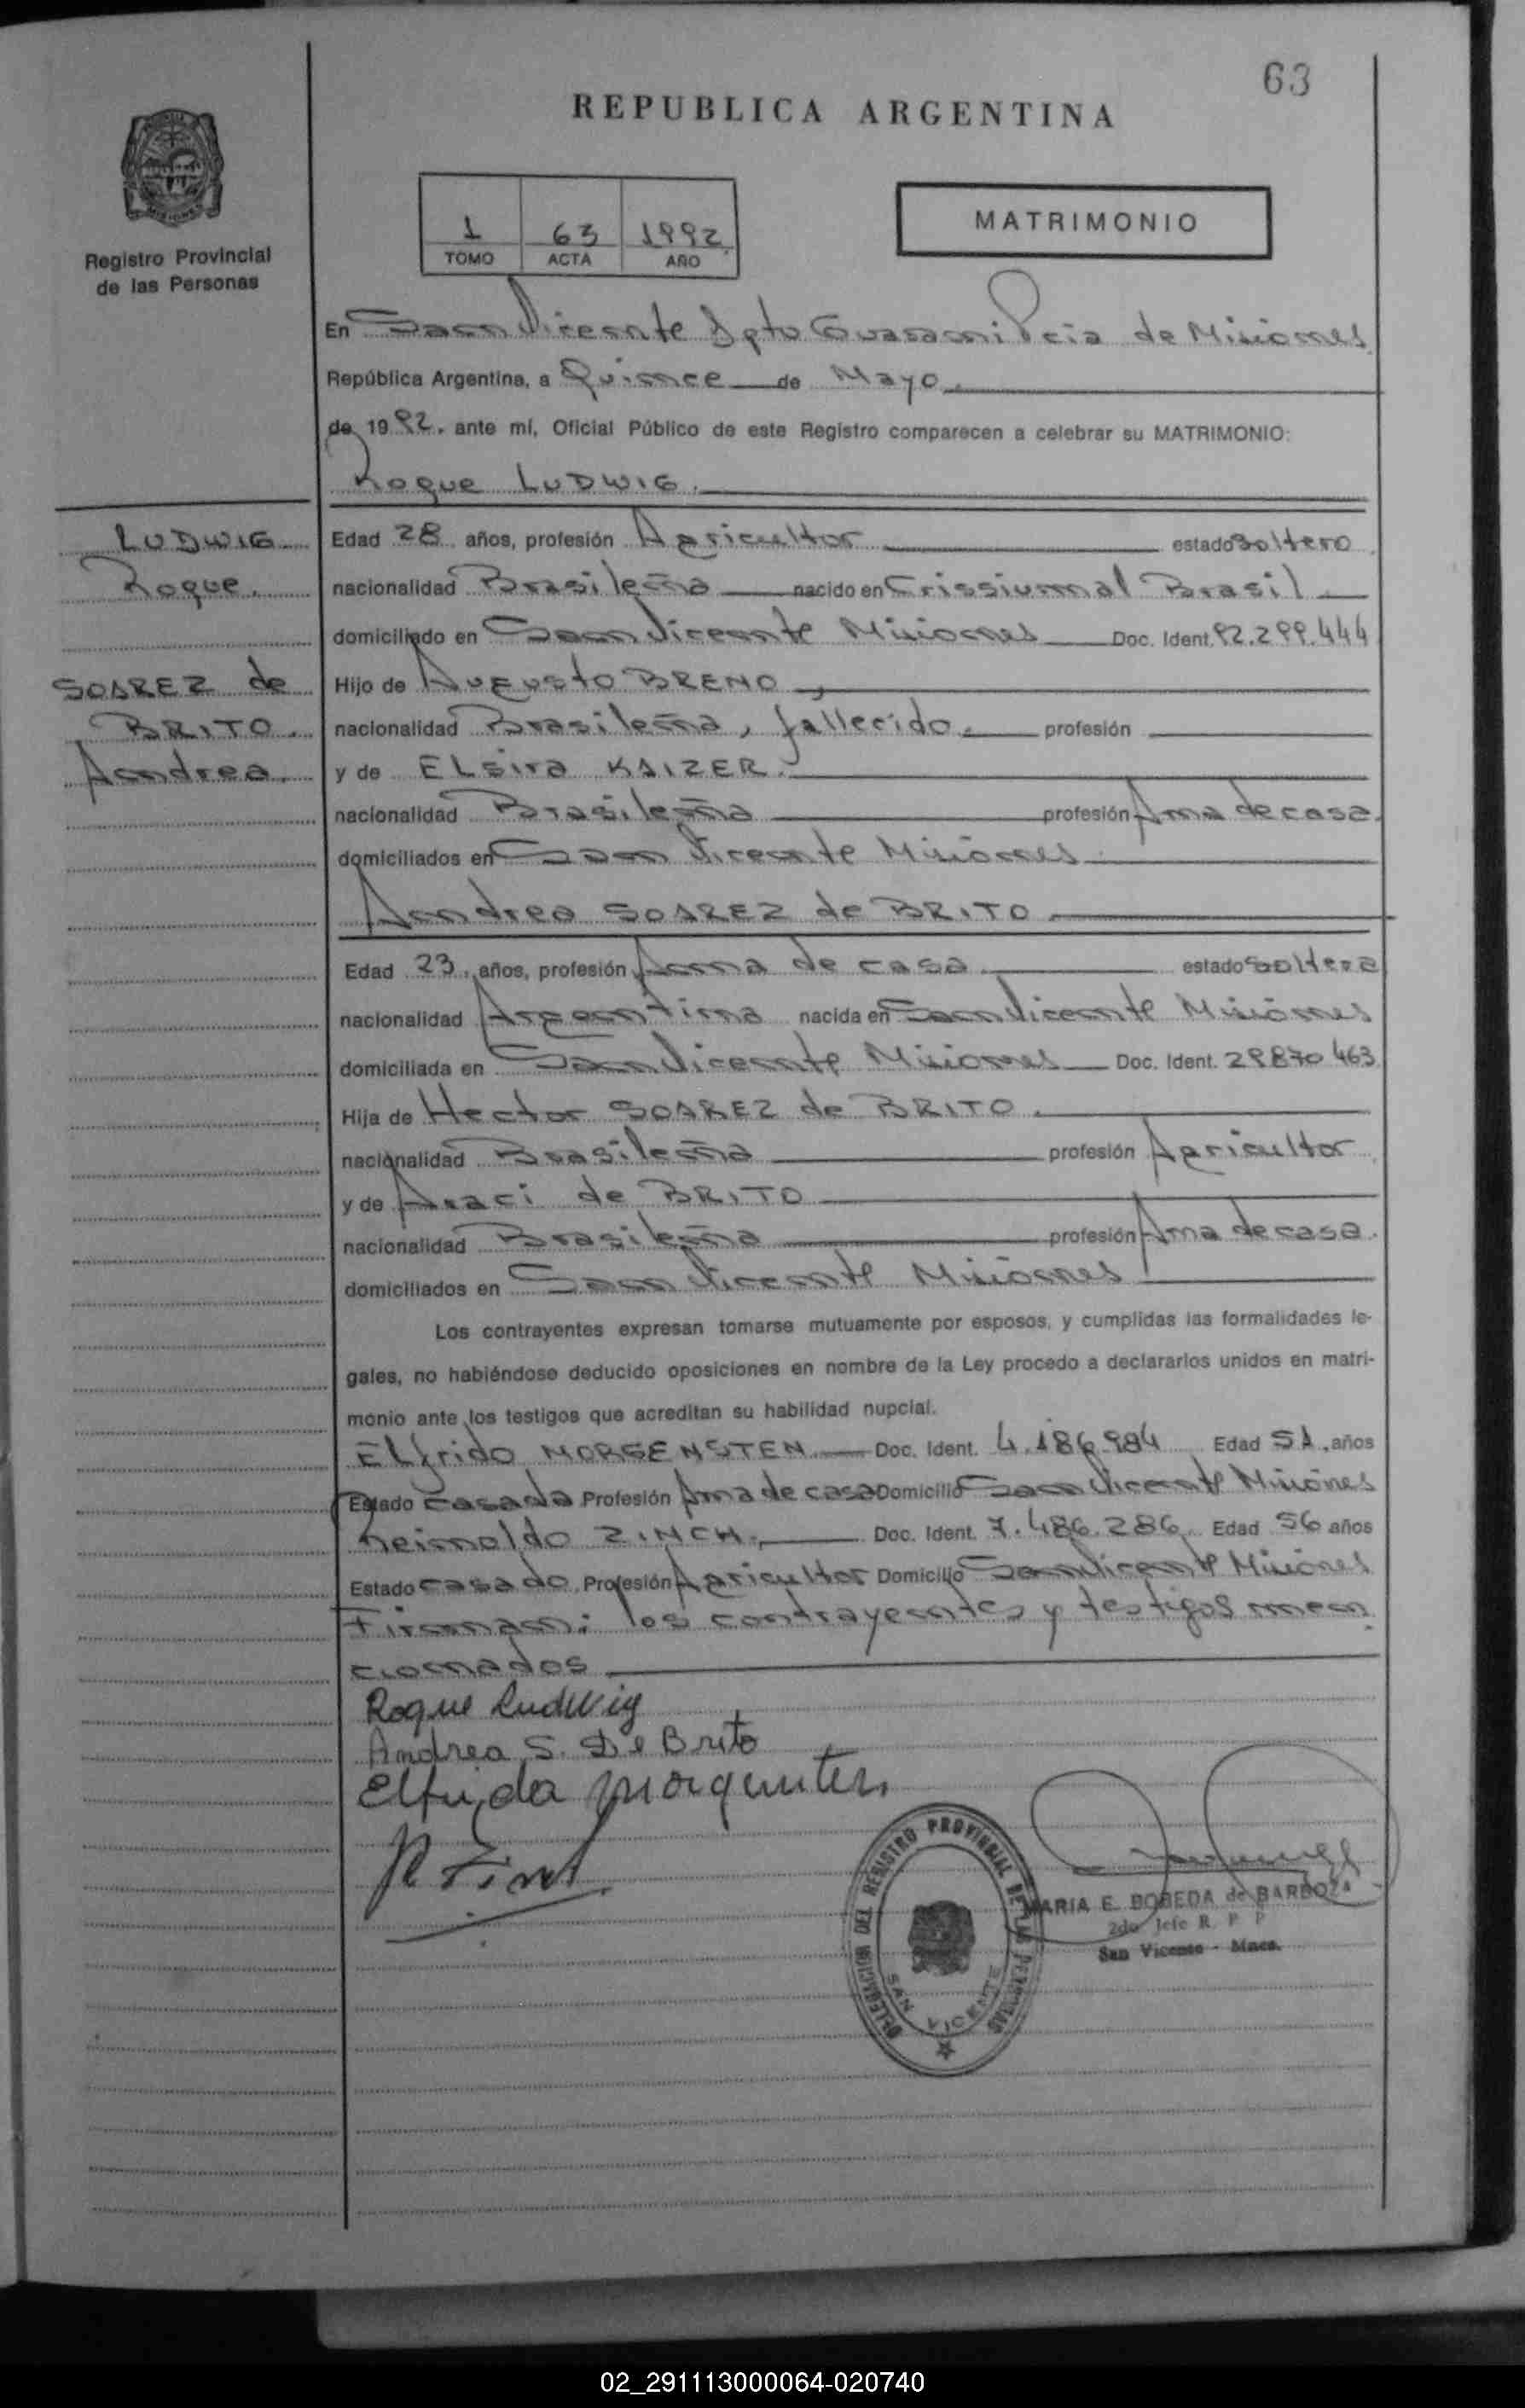 63
REPUBLICA ARGENTINA
1 63 1992
TOMO ACTA AÑO
MATRIMONIO
Registro Provincial
de las Personas
En San Vicente Dpto Guarani Pcia de Misiones
República Argentina, a Quince de Mayo.
de 1992. ante mí, Oficial Público de este Registro comparecen a celebrar su MATRIMONIO:
Roque LUDWIG.
LUDWIG
Roque.
SOAREZ de
BRITO.
Andrea.
Edad 28 años, profesión Agricultor estado Soltero
nacionalidad Brasileña nacido en Crissiumal Brasil
domiciliado en San Vicente Misiones Doc. Ident. 92.299.444
Hijo de Augusto BRENO,
nacionalidad Brasileña, fallecido. profesión
y de ELsira KAIZER.
nacionalidad Brasileña profesión Ama de casa.
domiciliados en San Vicente Misiones
Andrea SOAREZ de BRITO
Edad 23, años, profesión Ama de casa estado Soltera
nacionalidad Argentina nacida en San Vicente Misiones
domiciliada en San Vicente Misiones Doc. Ident. 29870463
Hija de Hector SOAREZ de BRITO.
nacionalidad Brasileña profesión Agricultor
y de Araci de BRITO
nacionalidad Brasileña profesión Ama de casa.
domiciliados en San Vicente Misiones
Los contrayentes expresan tomarse mutuamente por esposos, y cumplidas las formalidades le-
gales, no habiéndose deducido oposiciones en nombre de la Ley procedo a declararlos unidos en matri-
monio ante los testigos que acreditan su habilidad nupcial.
ELfrido MORGENSTEN Doc. Ident. 4.186.984 Edad 51, años
Estado Casada Profesión Ama de casa Domicilio San Vicente Misiones
Reinoldo ZINCH. Doc. Ident. 7.486.286 Edad 56 años
Estado Casado. Profesión Agricultor Domicilio San Vicente Misiones
Firman: los contrayentes y testigos men
cionados
Roque Ludwig
Andrea S. De Brito
Elfrida
DELEGACION DEL REGISTRO PROVINCIAL DE LAS PERSONAS
SAN VICENTE
MARIA E. BOBEDA de BARBOZA
2do Jefe R. P. P
San Vicente - Mnes.
02_291113000064-020740